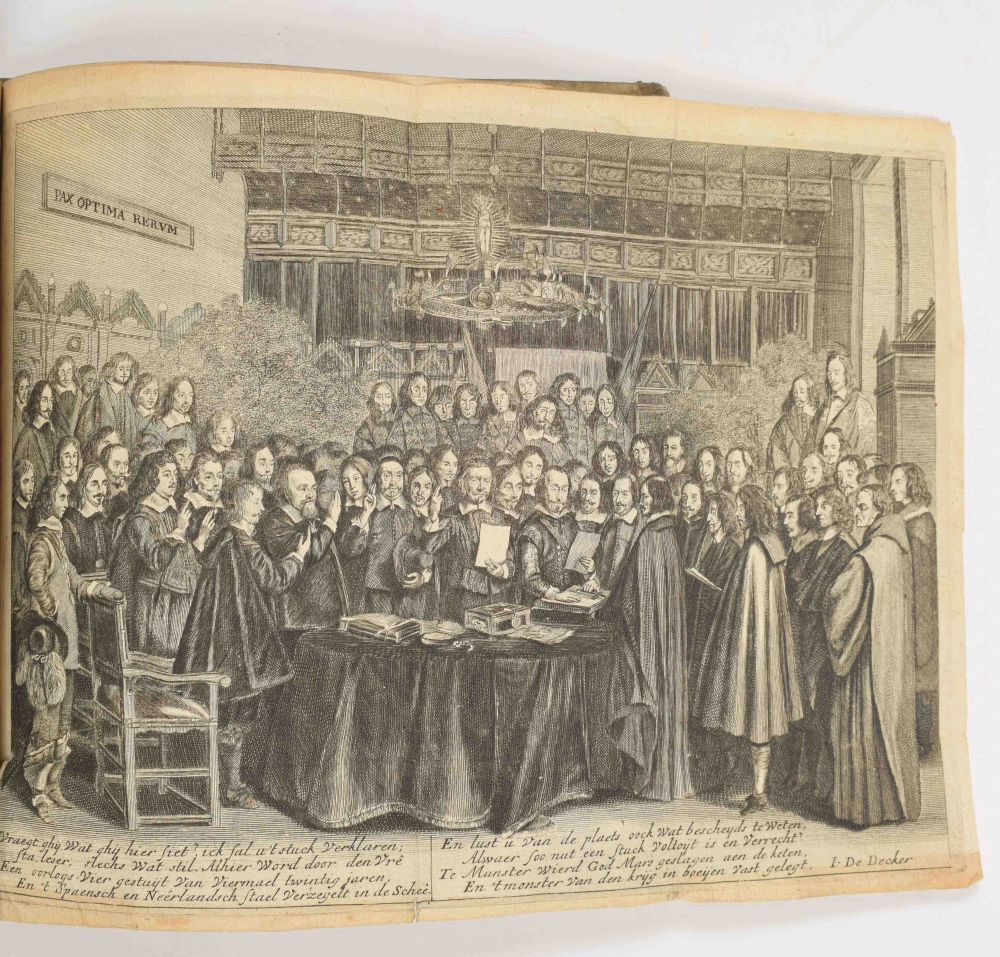 PAX OPTIMA RERVM
Vraegt ghy Wat ghy hier siet? ick sal u't stuck Verklaren;
sta, leser, slechs Wat stil. Alhier Word door den Vrê
Een oorlogs-Vier gestuijt Van Viermael twintig jaren,
En 't Spaensch en Neêrlandsch stael Verzegelt in de Scheê.
En lust u Van de plaets oock Wat bescheyds te Weten,
Alwaer soo nut een stuck Voltoyt is en Verrecht?
Te Munster Wierd God Mars geslagen aen de keten,
En 't monster Van den krijg in boeijen Vast gelegt.
I. De Decker